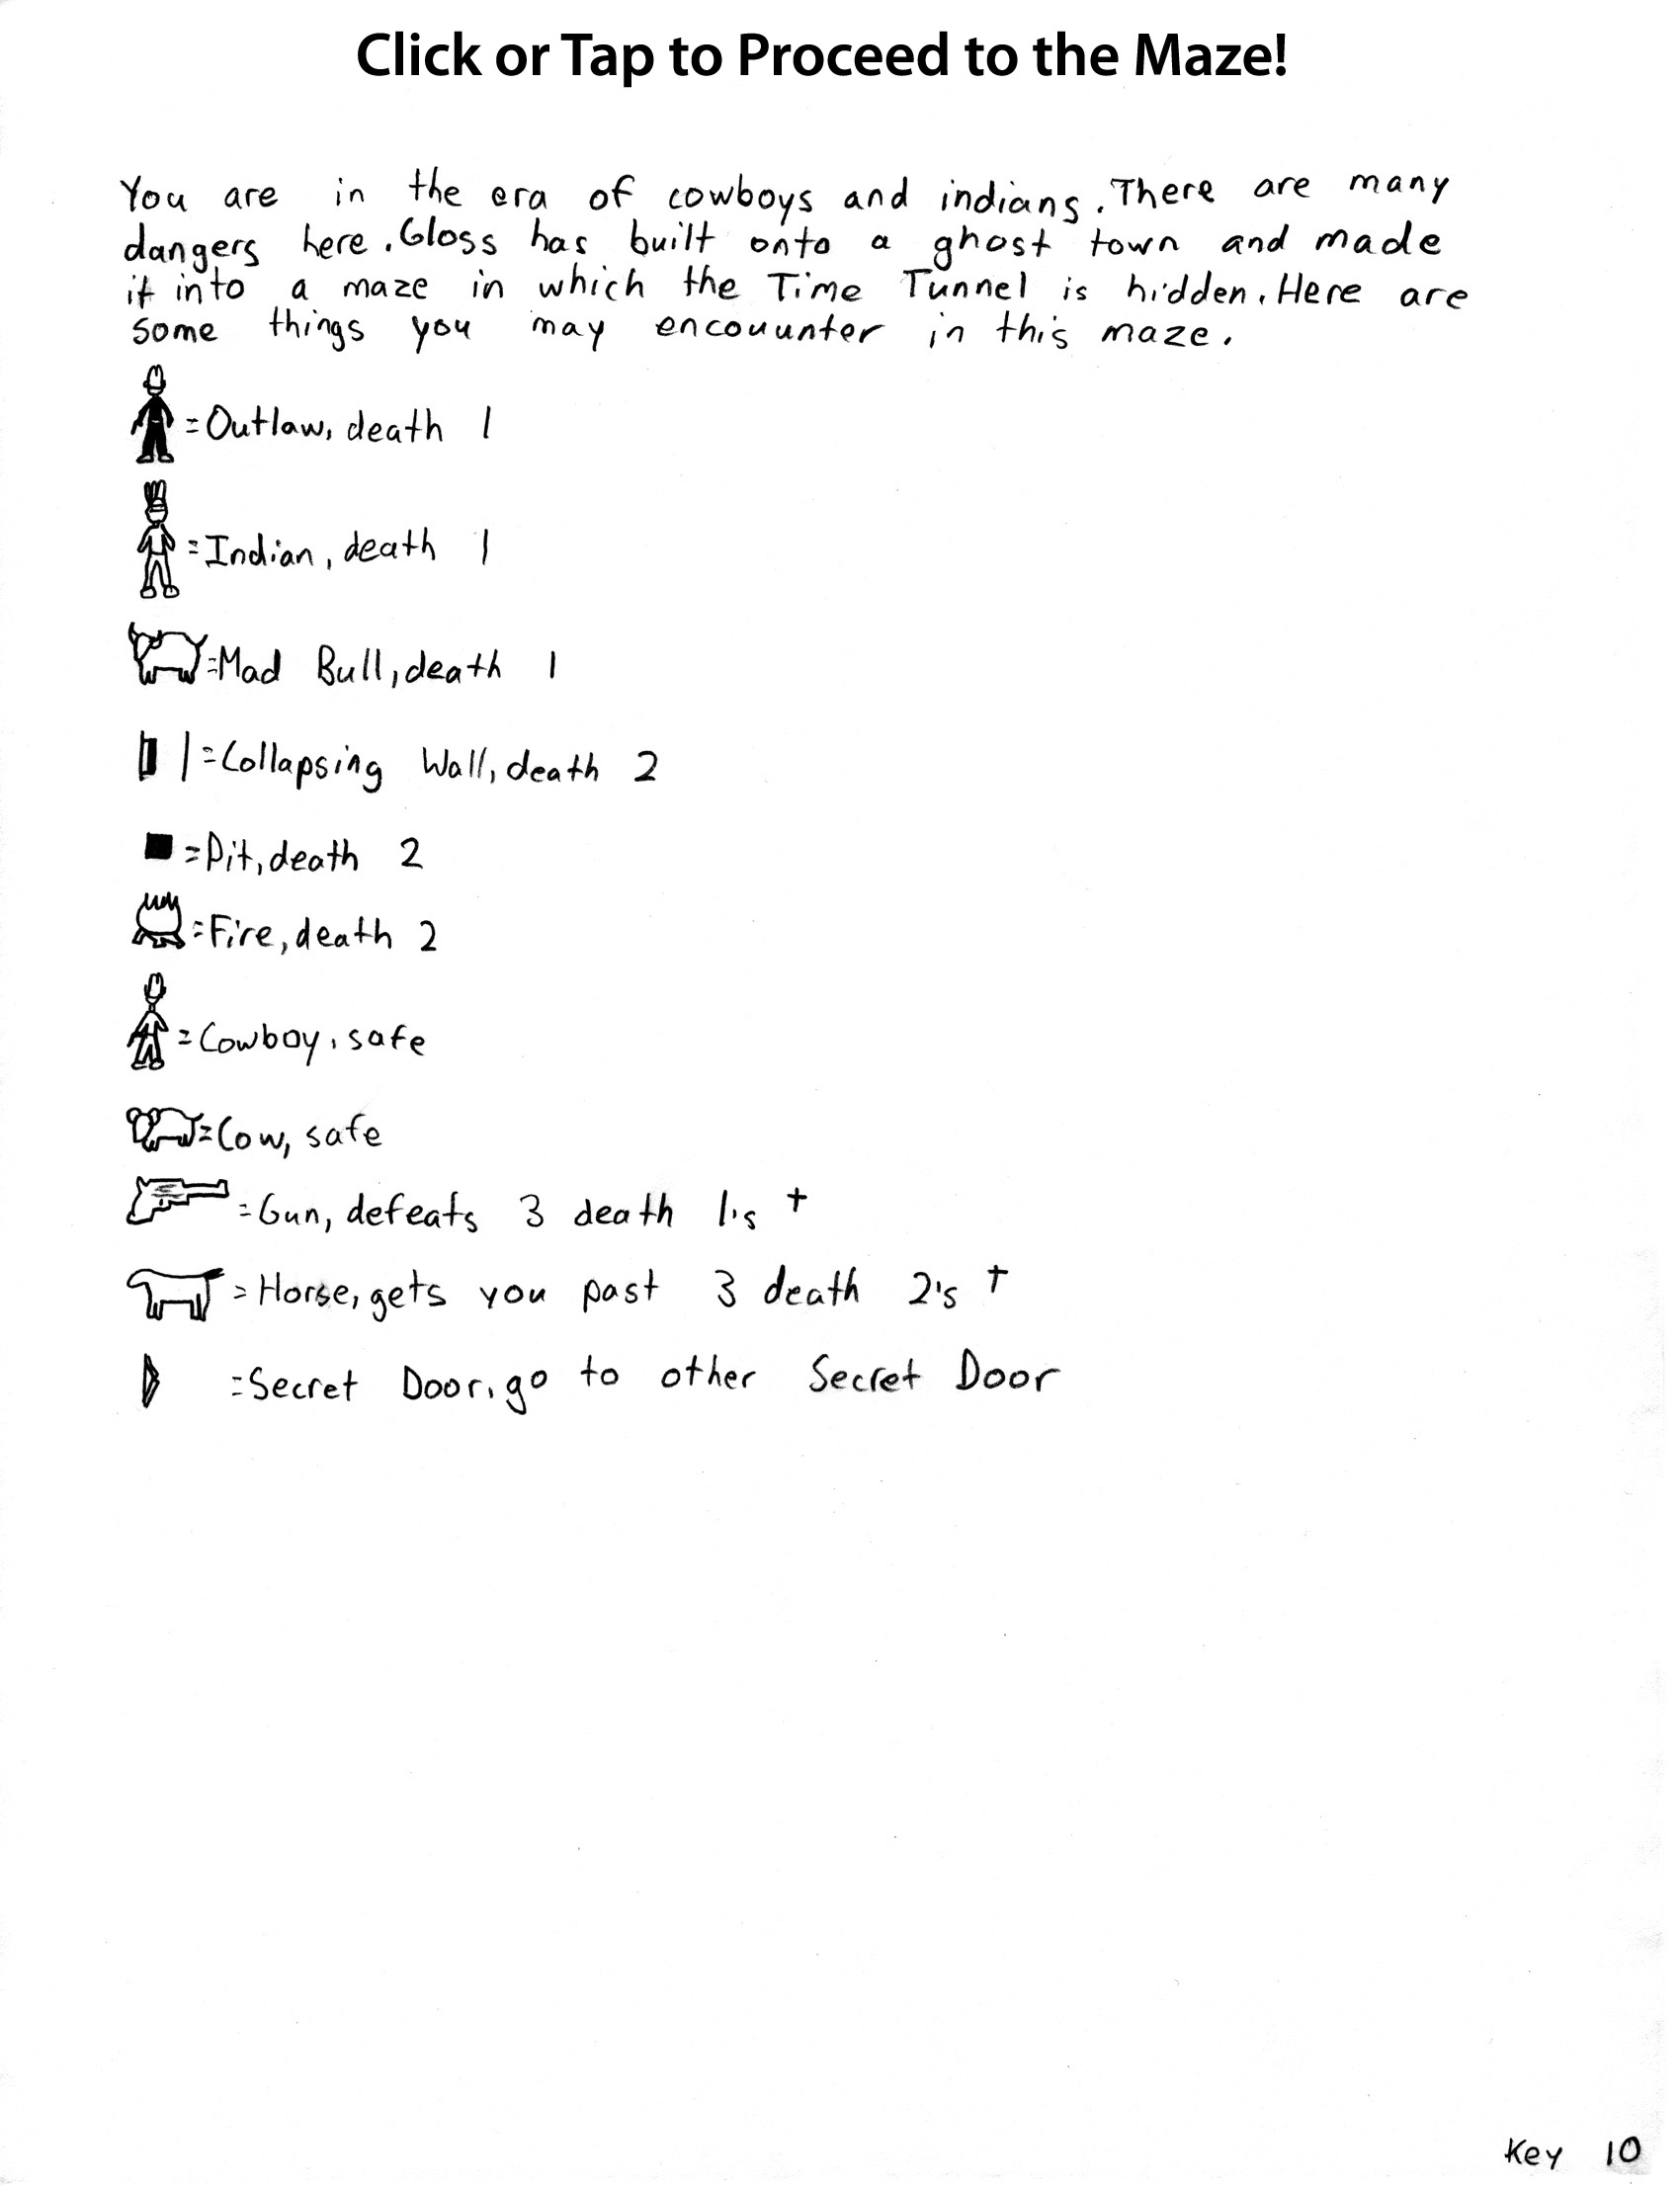 Click or Tap to Proceed to the Maze!
You are in the era of cowboys and indians. There are many
dangers here. Gloss has built onto a ghost town and made
it into a maze in which the Time Tunnel is hidden. Here are
some things you may encouunter in this maze.
=Outlaw, death 1
=Indian, death 1
=Mad Bull, death 1
=Collapsing Wall, death 2
=Pit, death 2
=Fire, death 2
=Cowboy, safe
=Cow, safe
=Gun, defeats 3 death 1's †
=Horse, gets you past 3 death 2's †
=Secret Door, go to other Secret Door
Key 10